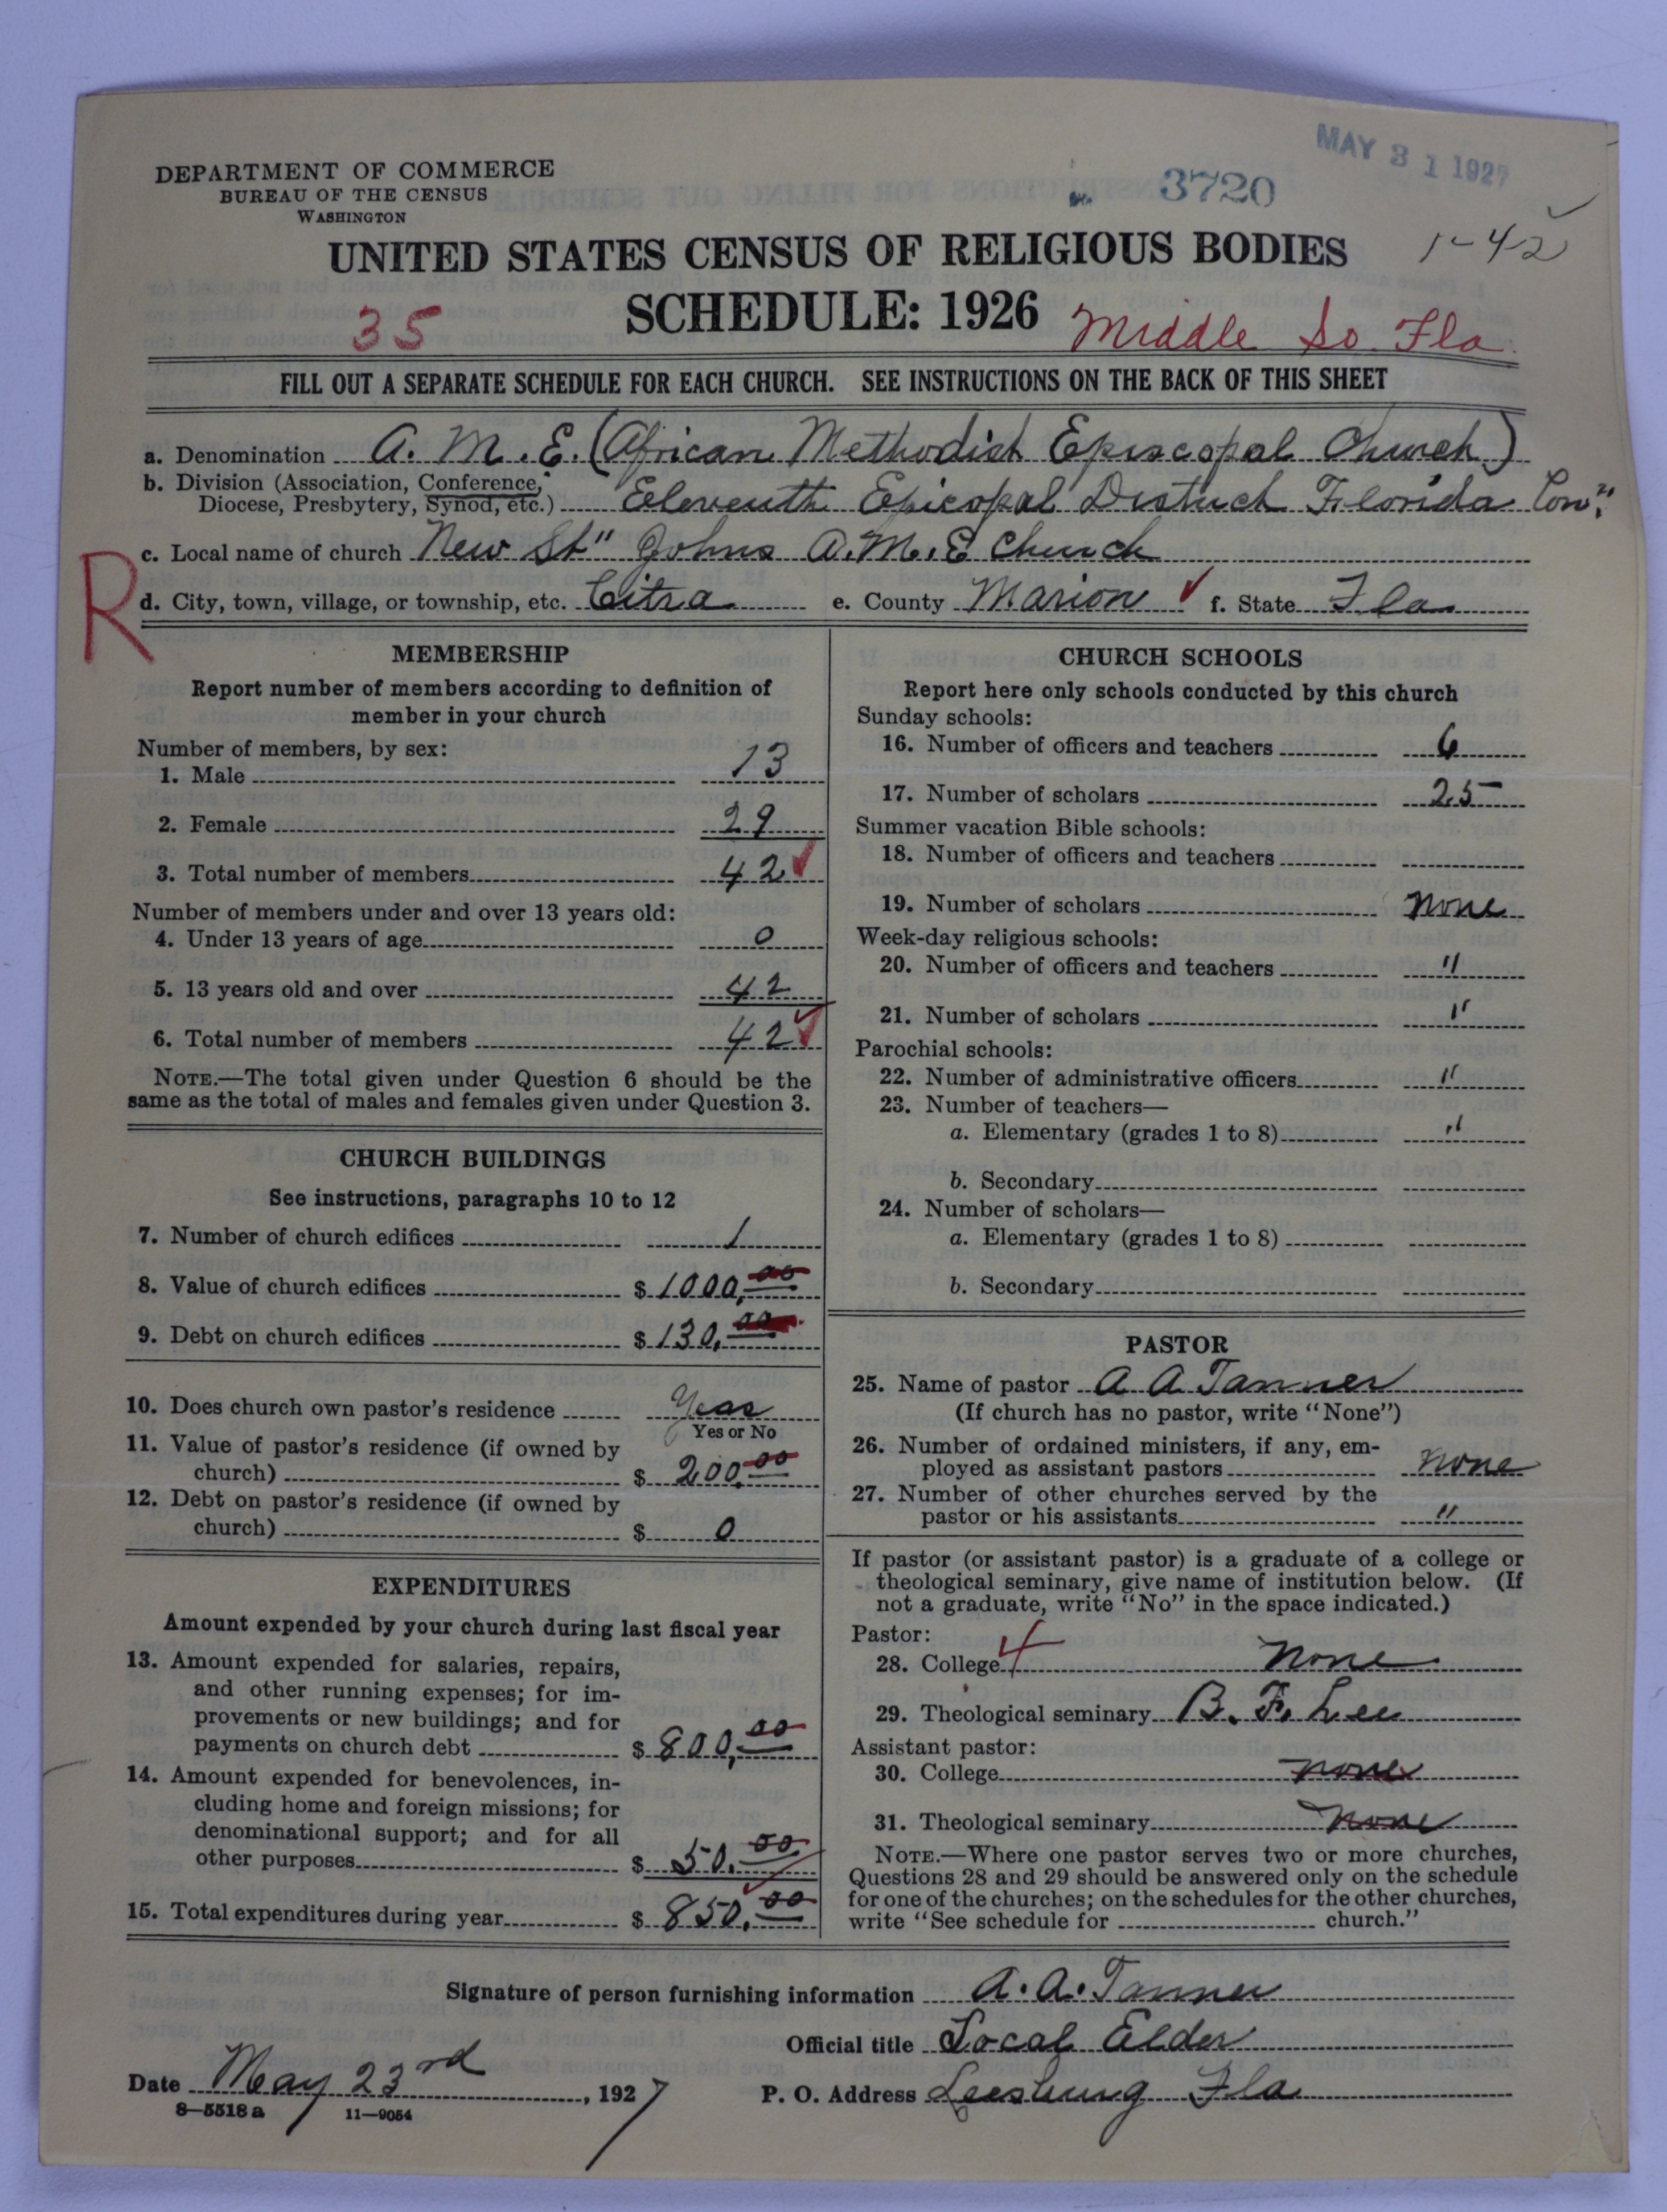 MAY 31 1927
DEPARTMENT OF COMMERCE
BUREAU OF THE CENSUS
WASHINGTON
3720
1-42
UNITED STATES CENSUS OF RELIGIOUS BODIES
SCHEDULE: 1926
35
Middle So. Fla.
FILL OUT A SEPARATE SCHEDULE FOR EACH CHURCH. SEE INSTRUCTIONS ON THE BACK OF THIS SHEET
a. Denomination A. M. E. (African Methodist Episcopal Church)
b. Division (Association, Conference,
Diocese, Presbytery, Synod, etc.) Eleventh Epicopal Districh Florida Con".
c. Local name of church New St" Johns A.M.E Church
R
d. City, town, village, or township, etc. Citra e. County Marion f. State Fla
MEMBERSHIP
Report number of members according to definition of
member in your church
Number of members, by sex:
1. Male 13
2. Female 29
3. Total number of members 42
Number of members under and over 13 years old:
4. Under 13 years of age 0
5. 13 years old and over 42
6. Total number of members 42
NOTE.—The total given under Question 6 should be the
same as the total of males and females given under Question 3.
CHURCH BUILDINGS
See instructions, paragraphs 10 to 12
7. Number of church edifices 1
8. Value of church edifices $ 1000,00
9. Debt on church edifices $ 130,00
10. Does church own pastor's residence Yeas
Yes or No
11. Value of pastor's residence (if owned by
church) $ 200.00
12. Debt on pastor's residence (if owned by
church) $ 0
EXPENDITURES
Amount expended by your church during last fiscal year
13. Amount expended for salaries, repairs,
and other running expenses; for im-
provements or new buildings; and for
payments on church debt $ 800,00
14. Amount expended for benevolences, in-
cluding home and foreign missions; for
denominational support; and for all
other purposes $ 50.00
15. Total expenditures during year $ 850.00
CHURCH SCHOOLS
Report here only schools conducted by this church
Sunday schools:
16. Number of officers and teachers 6
17. Number of scholars 25
Summer vacation Bible schools:
18. Number of officers and teachers
19. Number of scholars None
Week-day religious schools:
20. Number of officers and teachers "
21. Number of scholars "
Parochial schools:
22. Number of administrative officers "
23. Number of teachers—
a. Elementary (grades 1 to 8) "
b. Secondary
24. Number of scholars—
a. Elementary (grades 1 to 8)
b. Secondary
PASTOR
25. Name of pastor A A Tanner
(If church has no pastor, write "None")
26. Number of ordained ministers, if any, em-
ployed as assistant pastors None
27. Number of other churches served by the
pastor or his assistants "
If pastor (or assistant pastor) is a graduate of a college or
theological seminary, give name of institution below. (If
not a graduate, write "No" in the space indicated.)
Pastor:
28. College 4 None
29. Theological seminary B. F. Lee
Assistant pastor:
30. College none
31. Theological seminary None
NOTE.—Where one pastor serves two or more churches,
Questions 28 and 29 should be answered only on the schedule
for one of the churches; on the schedules for the other churches,
write "See schedule for church."
Signature of person furnishing information A. A. Tanner
Official title Local Elder
Date May 23rd, 1927 P. O. Address Leesburg Fla
8-5518 a 11-9054